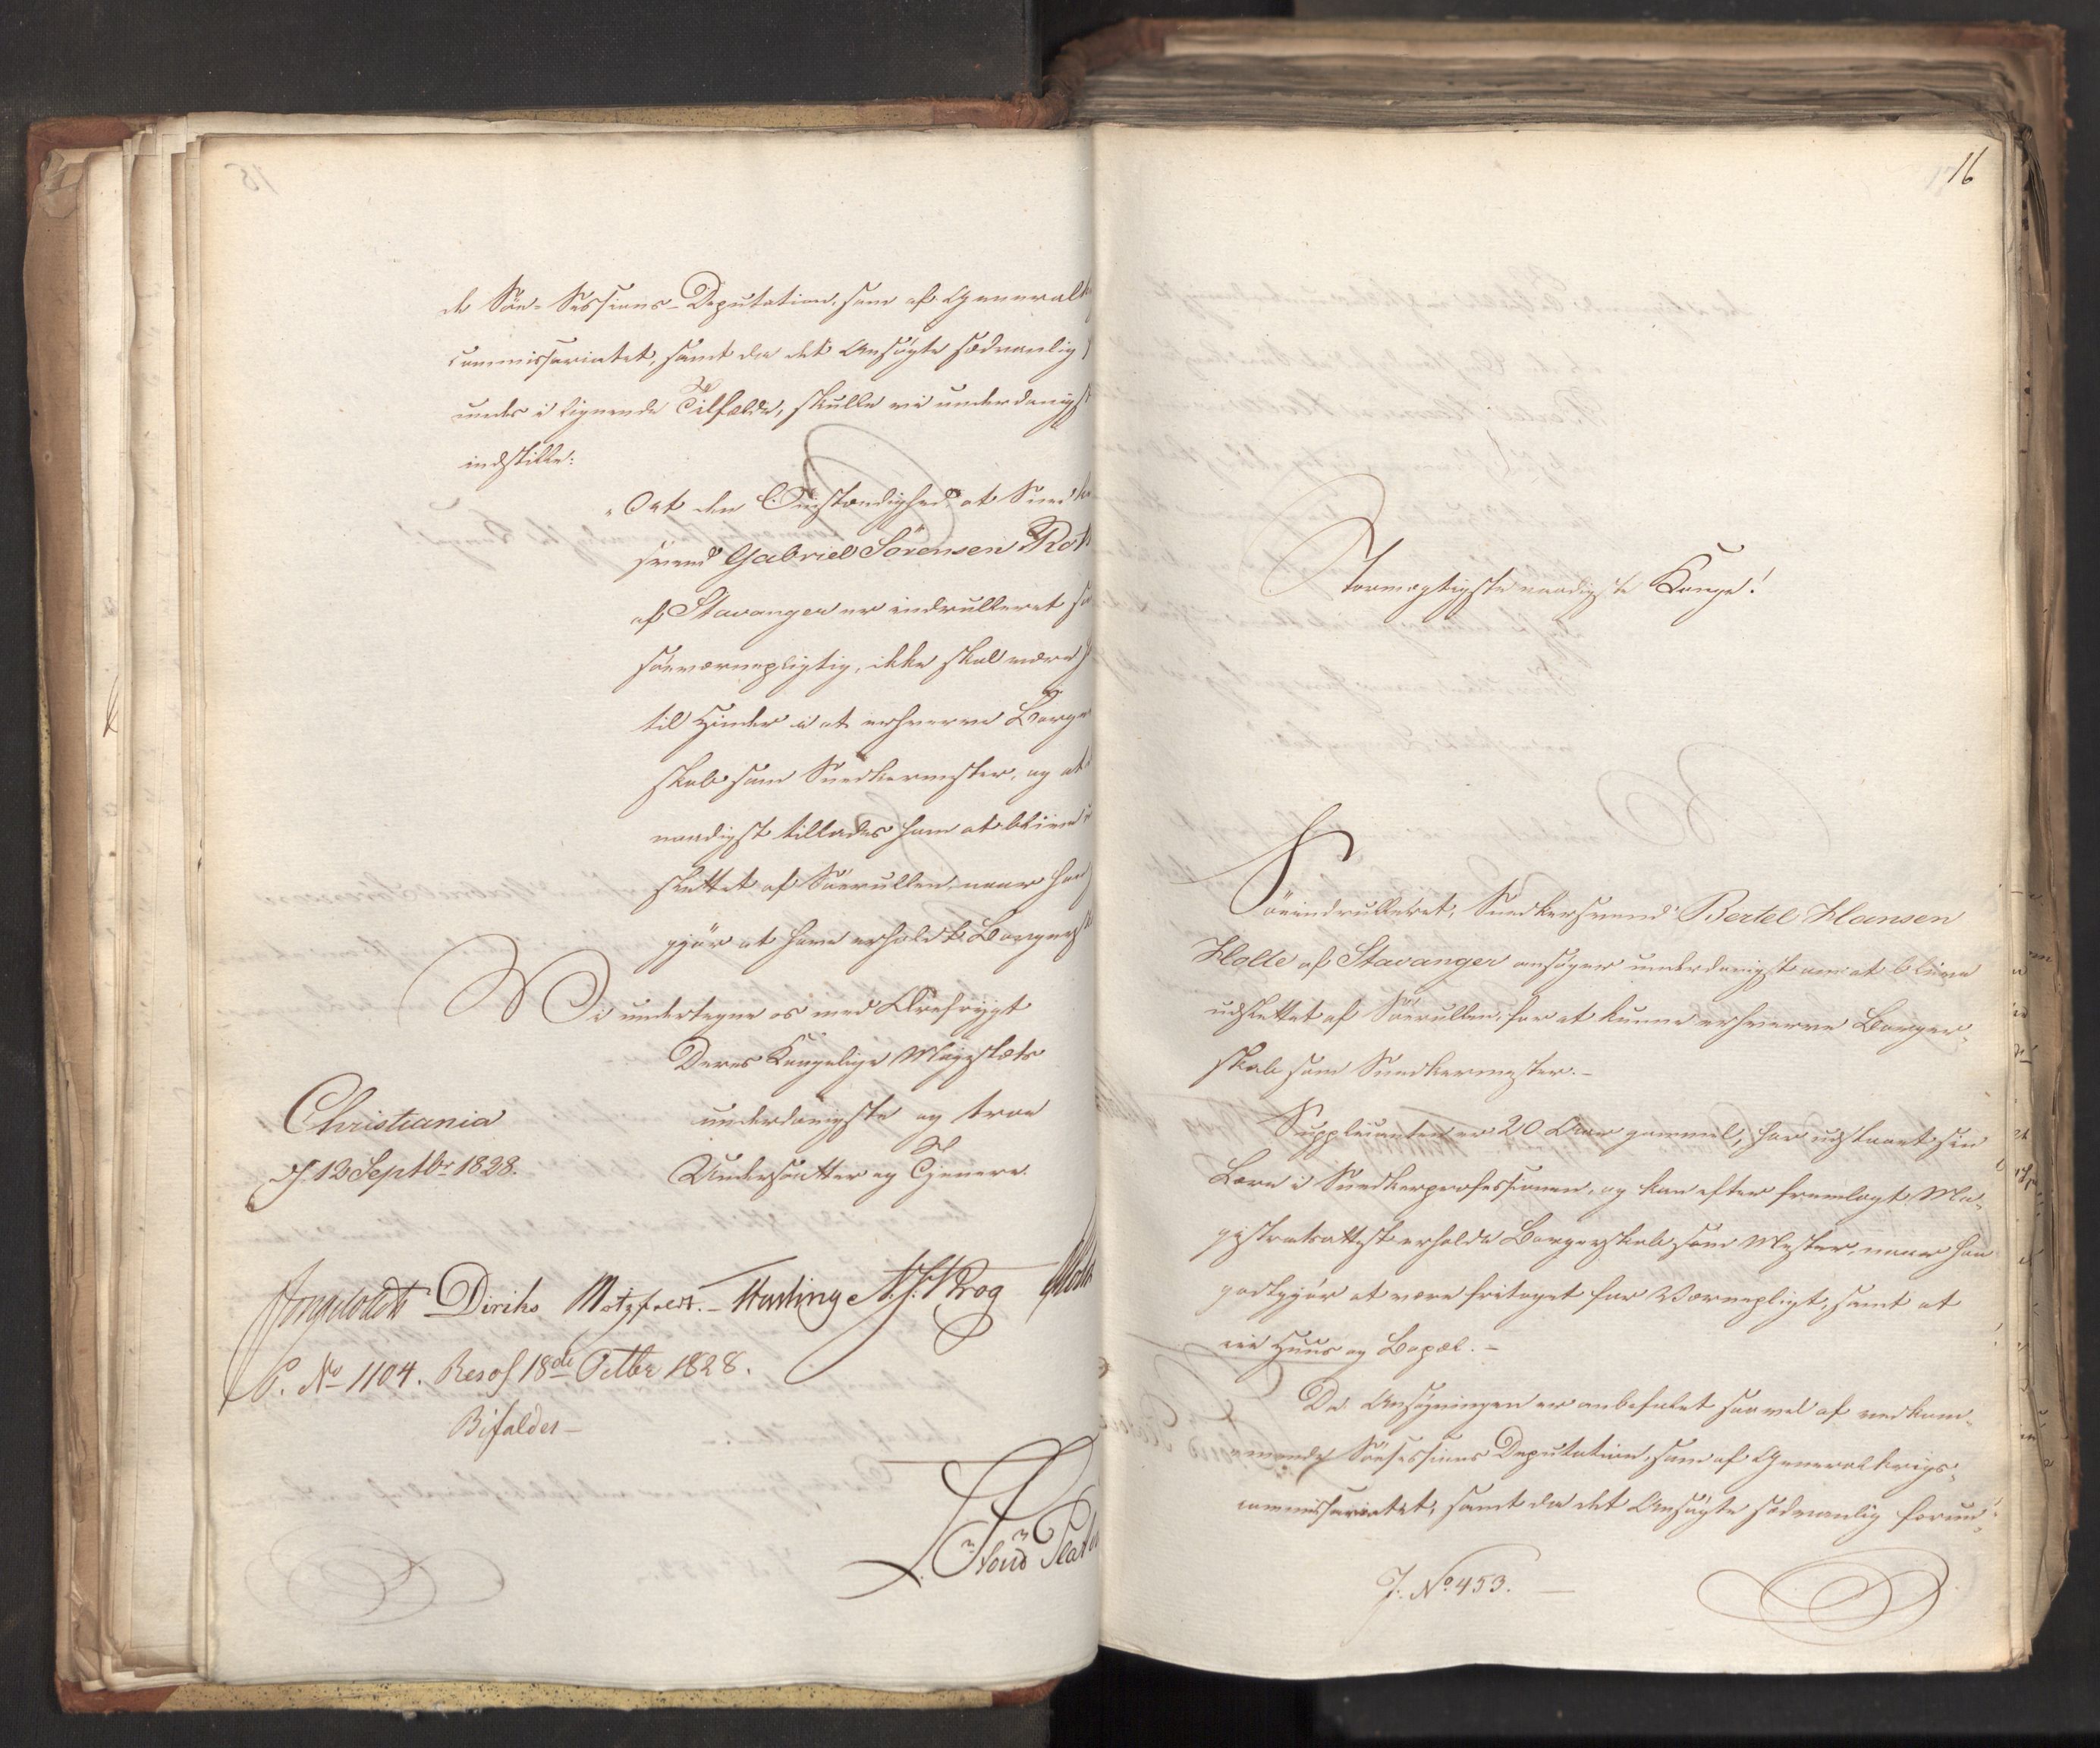 de Söe-Sessions-Deputation, som af General
commissariatet, samt da det Ansögte sædvanlig
undes i lignende Tilfælde, skulle vi underdanigst
indstille:
"At den Omstændighed at Snedker
svend Gabriel Sörensen
af Stavanger er indrulleret
söeværnepligtig, ikke skal være
til Hinder i at erhverve Borger
skab som Snedkermester, og at
naadigst tillades ham at blive
slettet af Söerullen, naar han
gjör at have erholdt Borgersk
Vi undertegne os med Ærefrygt
Deres Kongelige Majestæts
underdanigste og troe
Undersaatter og Tjenere.
Christiania
d. 12 Septbr 1828.
Diriks Motzfeldt. N. J. Krog
P. No 1104. Resol 18de Octbr 1828.
Bifaldes
16
Stormægtigste naadigste Konge!
Söeindrulleret, Snedkersvend Bertel Hansen
Holle af Stavanger ansöger underdanigst om at blive
udslettet af Söerullen, for at kunne erhverve Borger-
skab som Snedkermester.-
Supplicanten er 20 Aar gammel, har udstaaet sin
Lære i Snedkerprofessionen, og kan efter fremlagt Ma-
gistratsattest erholde Borgerskab som Mester, naar han
godtgjör at være fritaget for Værnepligt, samt at
eie Huus og Bopæl.-
Da Ansögningen er anbefalet saavel af vedkom-
mende Söesessions Deputation, som af Generalkrigs-
commissariatet, samt da det Ansögte sædvanlig forun-
J. No 453.